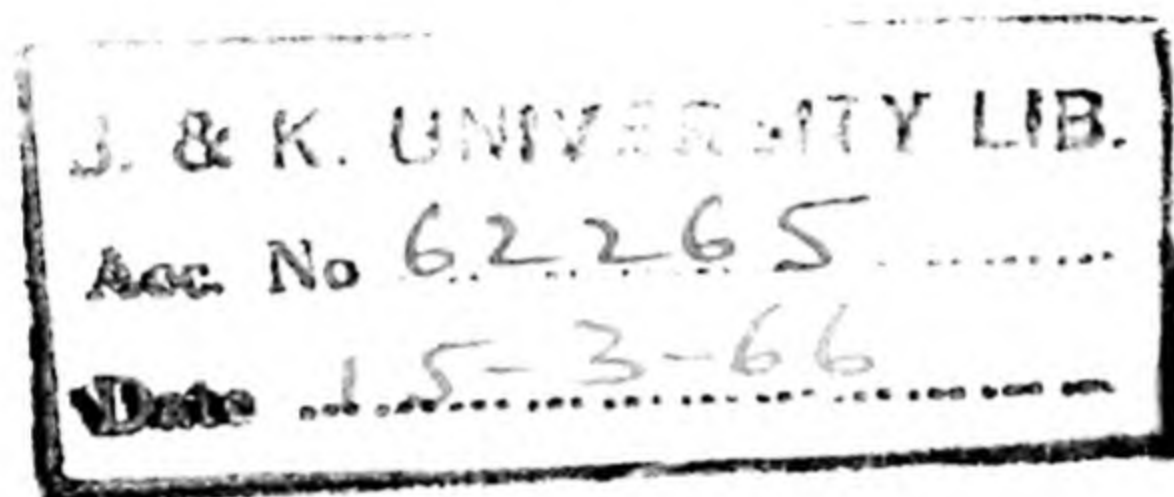 J. & K. UNIVERSITY LIB.
Acc. No 62265
Date 15-3-66